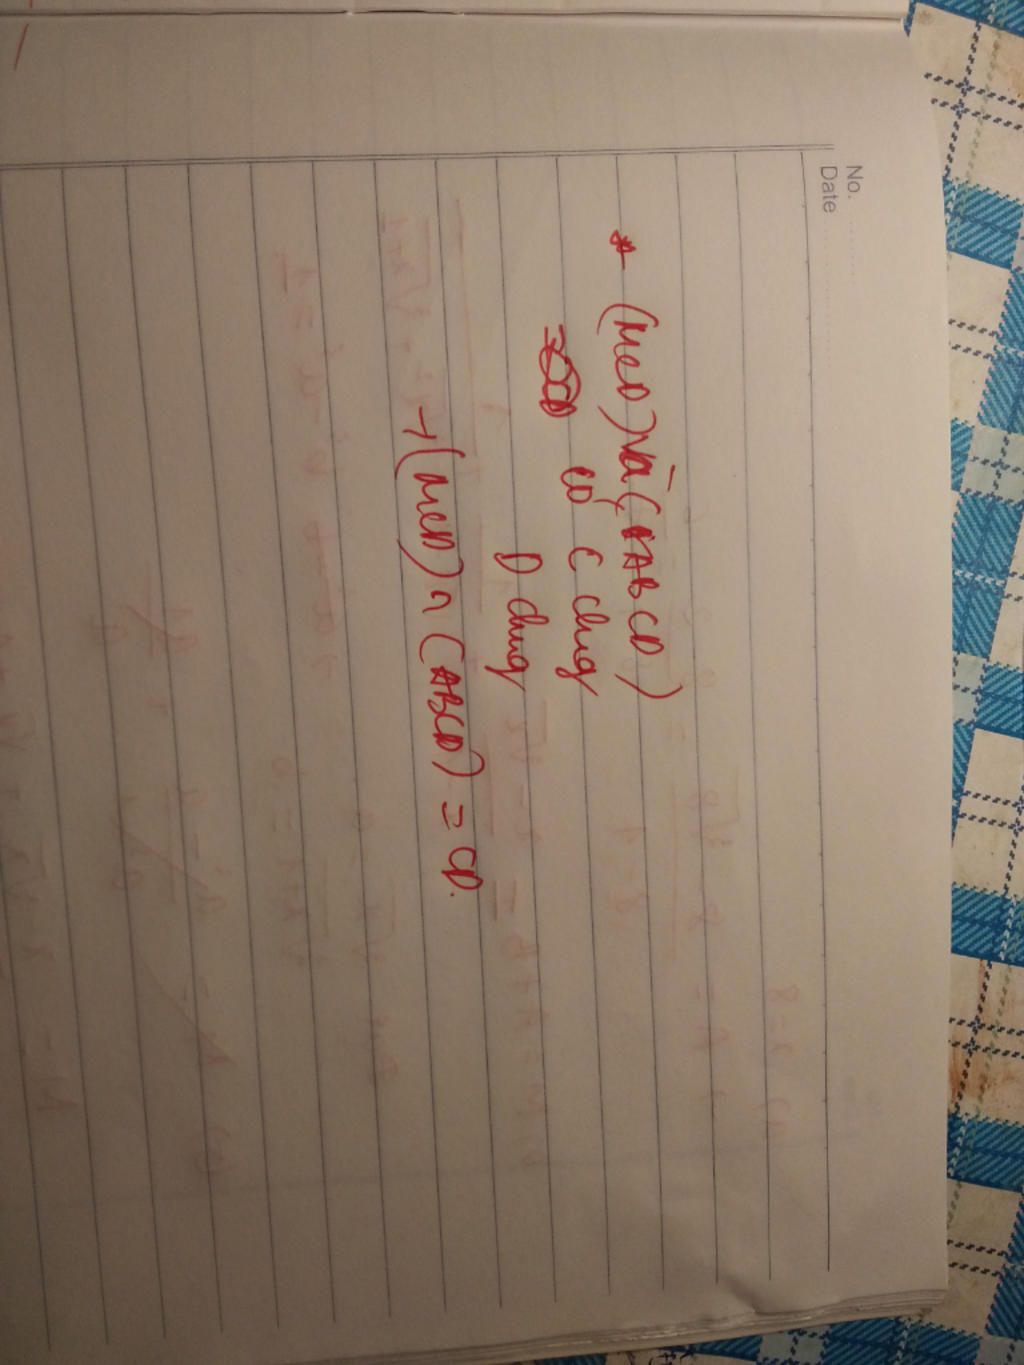 No.
Date
* (MCD) Và (ABCD)
có C chug
D chug
→ (MCD) ∩ (ABCD) = CD.